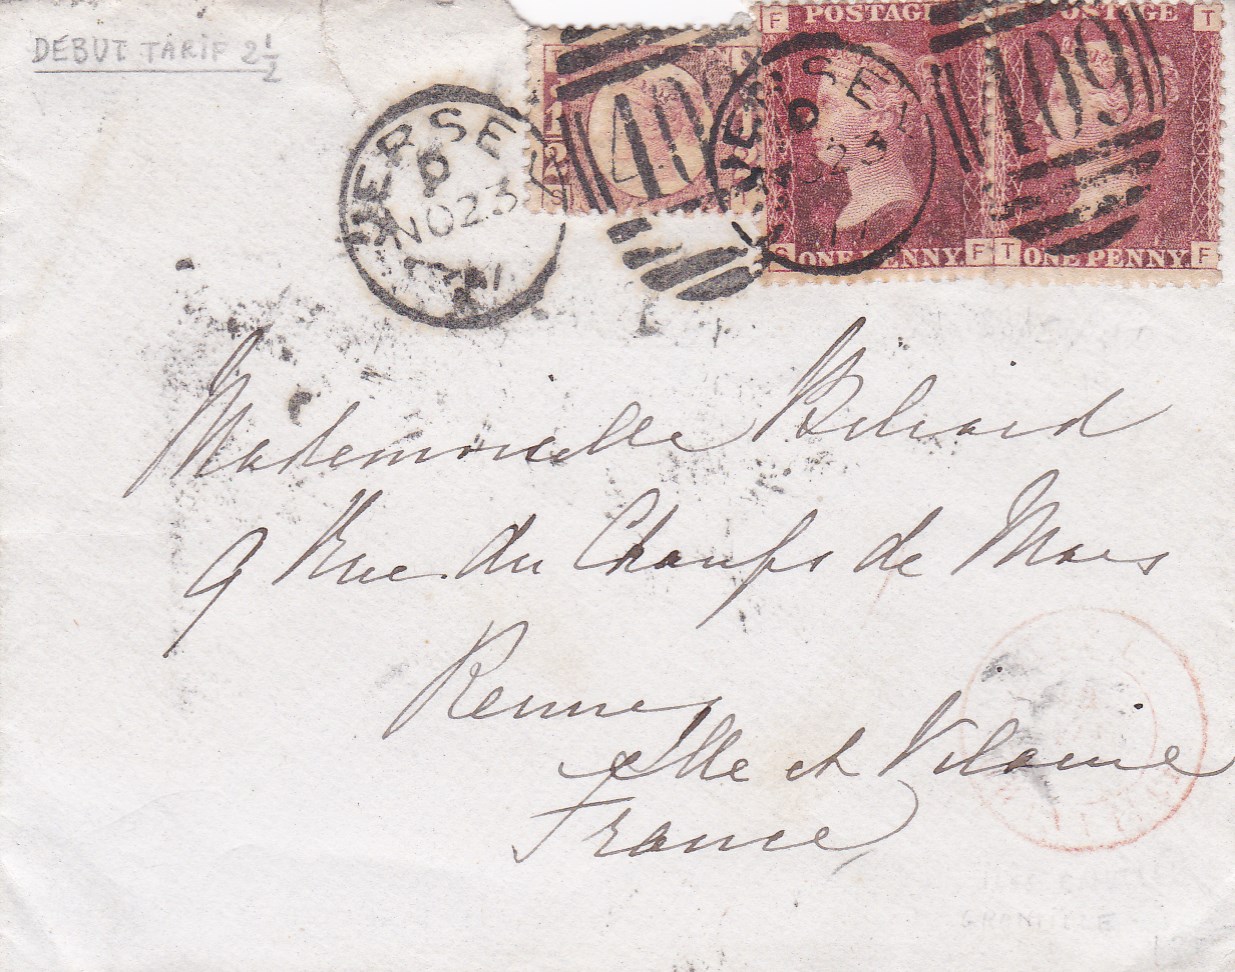 DÉBUT TARIF 2 1/2
JERSEY
P
NO 23
JERSEY
P
409
409
F POSTAGE
POSTAGE T
S ONE PENNY F
T ONE PENNY F
Mademoiselle Béliard
9 Rue du Champs de Mars
Rennes
Ille et Vilaine
France
GRANVILLE